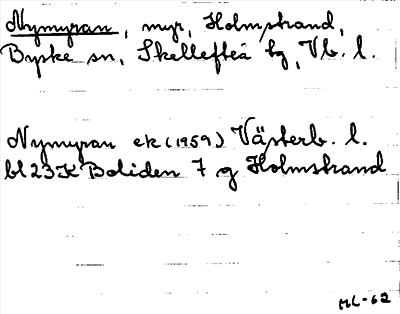 Nymyran, myr, Holmstrand,
Byske sn, Skellefteå tg, Vb. l.
Nymyran ek (1959) Västerb. l.
bl 23 K Boliden 7 g Holmstrand
HL-62